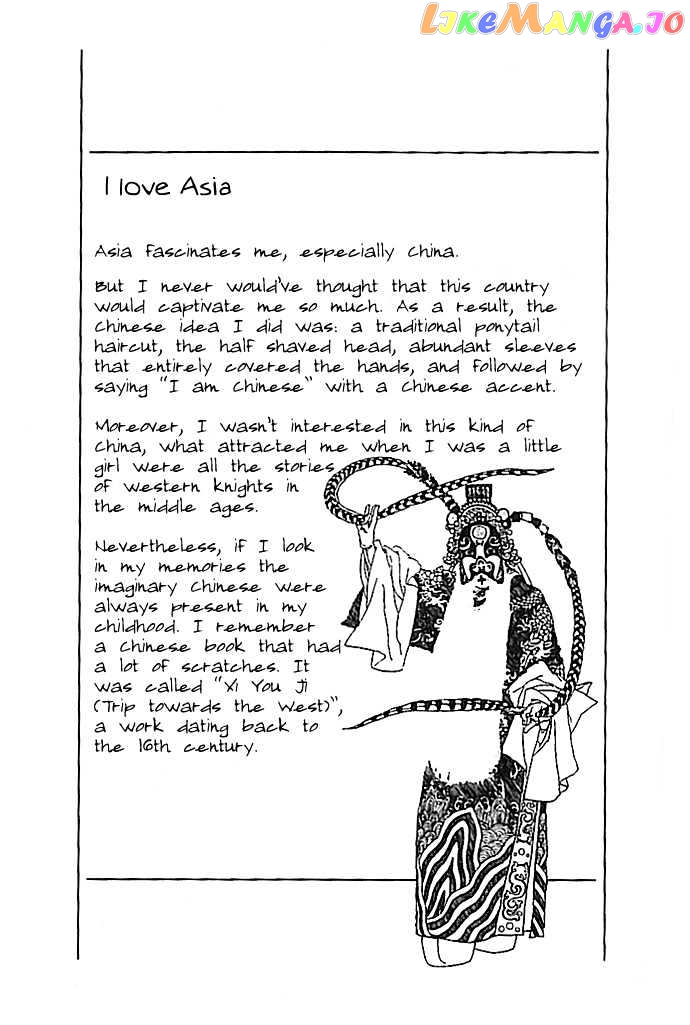 LIKEMANGA.IO
I love Asia
Asia fascinates me, especially China.
But I never would've thought that this country
would captivate me so much. As a result, the
Chinese idea I did was: a traditional ponytail
haircut, the half shaved head, abundant sleeves
that entirely covered the hands, and followed by
saying "I am Chinese" with a Chinese accent.
Moreover, I wasn't interested in this kind of
China, what attracted me when I was a little
girl were all the stories
of western knights in
the middle ages.
Nevertheless, if I look
in my memories the
imaginary Chinese were
always present in my
childhood. I remember
a Chinese book that had
a lot of scratches. It
was called "Xi You Ji
(Trip towards the West)",
a work dating back to
the 16th century.